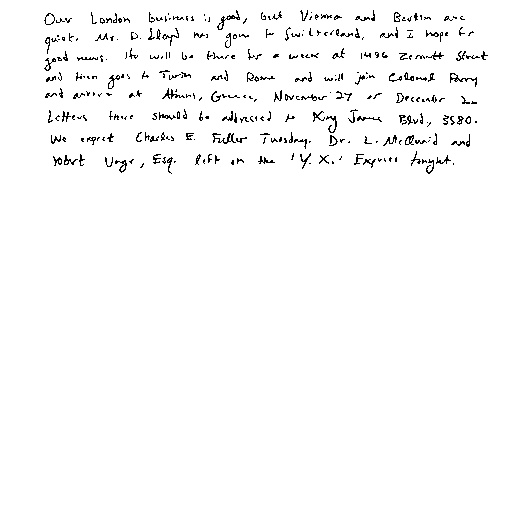 Our London business is good, but Vienna and Berlin are
quiet. Mr. D. Lloyd has gone to Switzerland, and I hope for
good news. He will be there for a week at 1496 Zermott Street
and then goes to Turin and Rome and will join Colonel Parry
and arrive at Athens, Greece, November 27 or December 2.
Letters there should be addressed to King James Blvd., 3580.
We expect Charles E. Fuller Tuesday. Dr. L. McQuaid and
Robert Unger, Esq. left on the 'Y.X.' Express tonight.